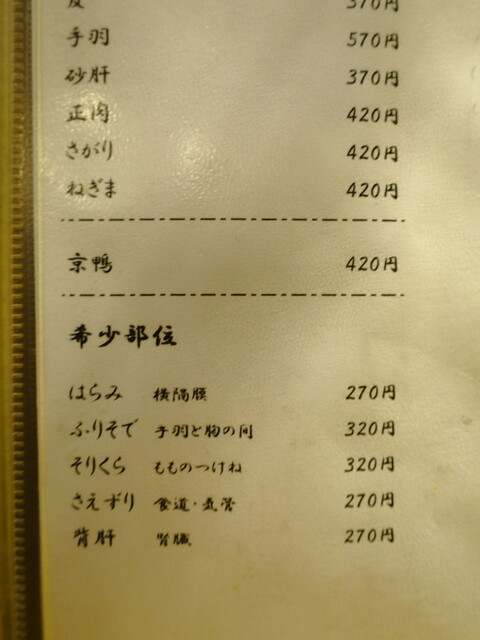 皮 370円
手羽 570円
砂肝 370円
正肉 420円
さがり 420円
ねぎま 420円
京鴨 420円
希少部位
はらみ 横隔膜 270円
ふりそで 手羽と胸の間 320円
そりくら もものつけね 320円
さえずり 食道・気管 270円
背肝 腎臓 270円